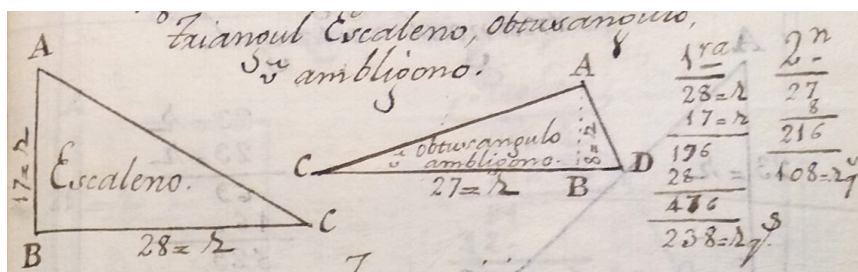 triangul Escaleno, Obtusangulo,
ŭ ambligono.
A
17=2
Escaleno.
B
28=2
C
A
C
ŭ obtusangulo
ambligono.
8=2
27=2
B
D
1ra
28=2
17=2
196
28 =
476
238=2qs.
2n
27
8
216
108=2q